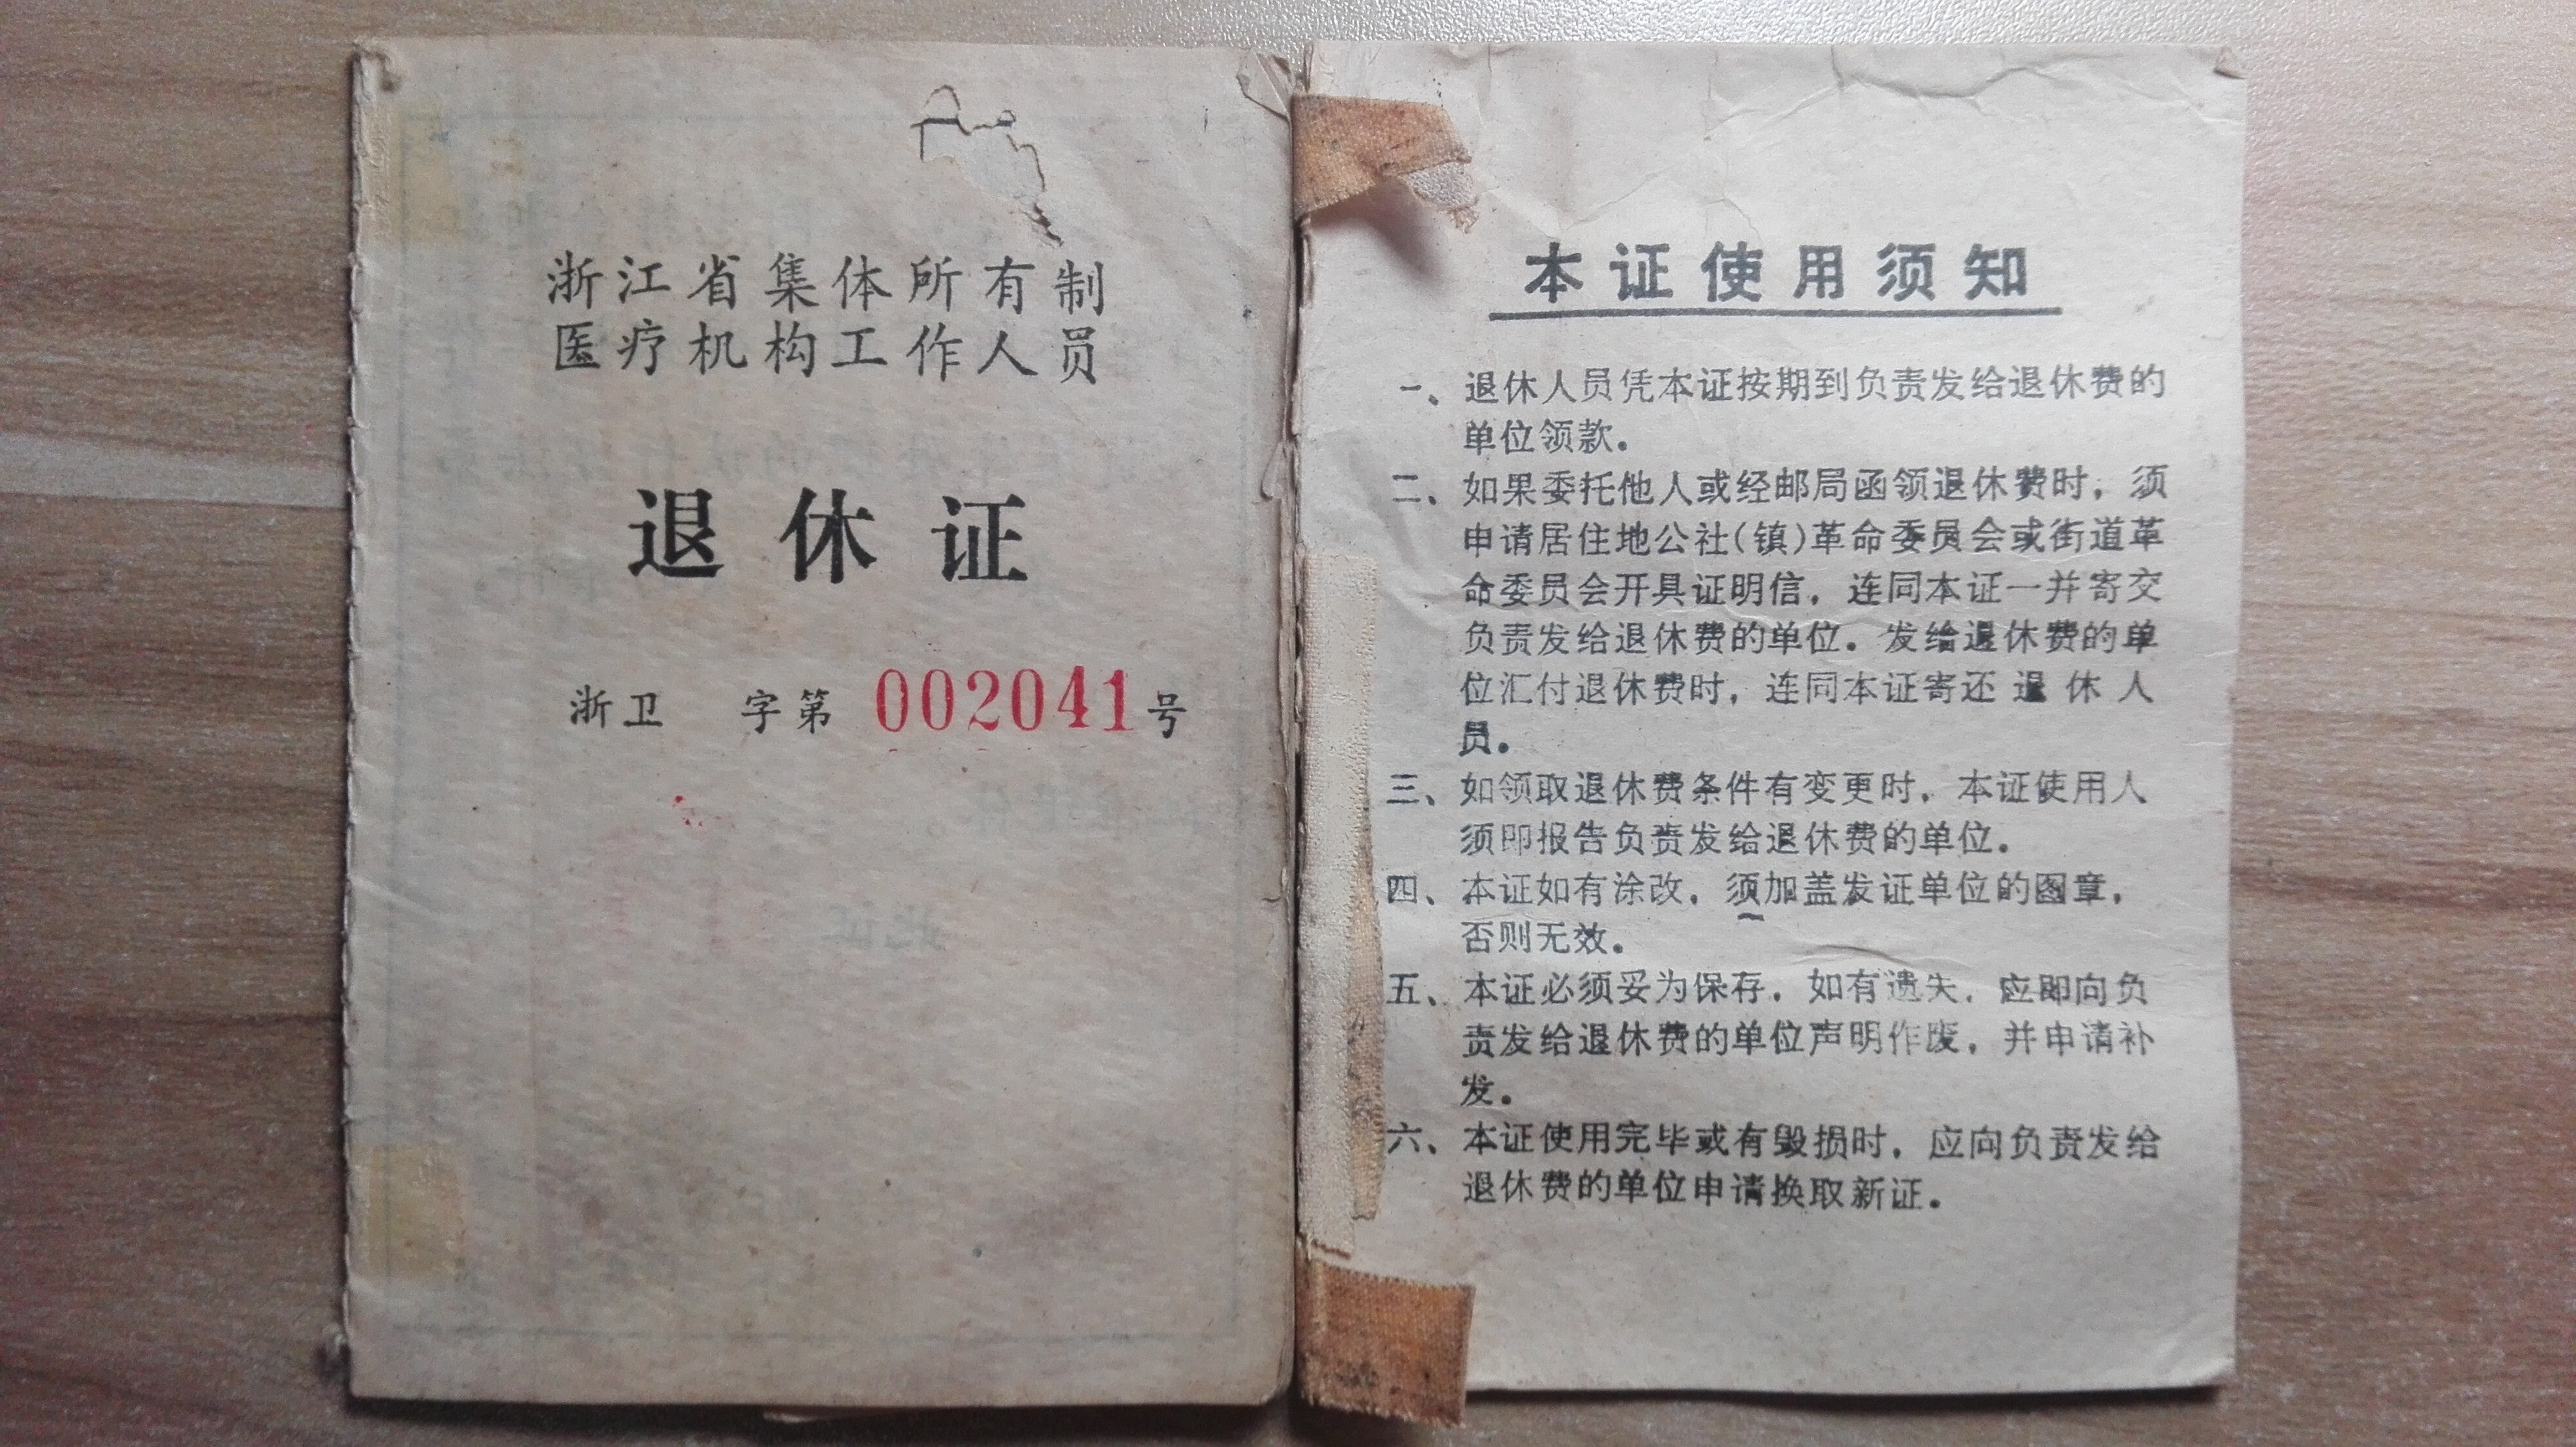 浙江省集体所有制
医疗机构工作人员
退休证
浙卫 字第 002041 号
本证使用须知
一、退休人员凭本证按期到负责发给退休费的
单位领款。
二、如果委托他人或经邮局函领退休费时，须
申请居住地公社(镇)革命委员会或街道革
命委员会开具证明信，连同本证一并寄交
负责发给退休费的单位。发给退休费的单
位汇付退休费时，连同本证寄还退休人
员。
三、如领取退休费条件有变更时，本证使用人
须即报告负责发给退休费的单位。
四、本证如有涂改，须加盖发证单位的图章，
否则无效。
五、本证必须妥为保存，如有遗失，应即向负
责发给退休费的单位声明作废，并申请补
发。
六、本证使用完毕或有毁损时，应向负责发给
退休费的单位申请换取新证。